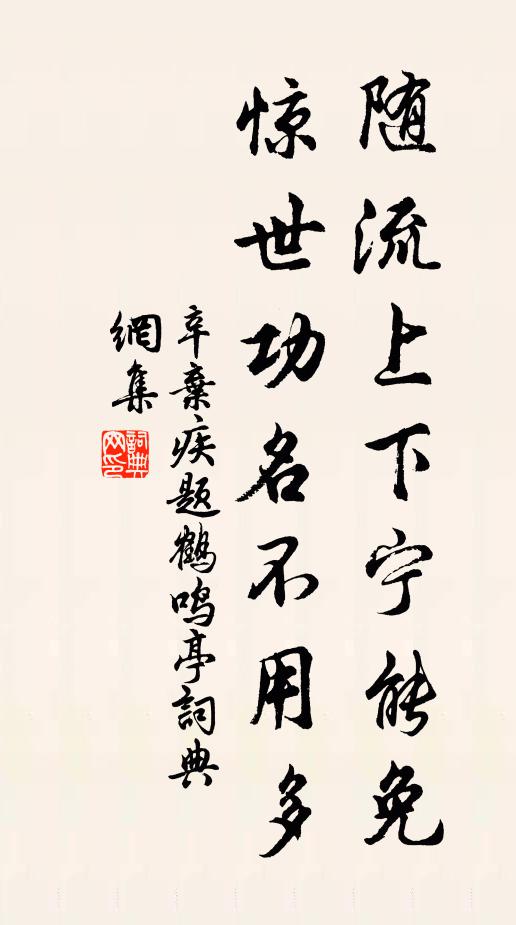 随流上下宁能免
惊世功名不用多
辛棄疾题鶴鸣亭詞典
網集
詞典
网印